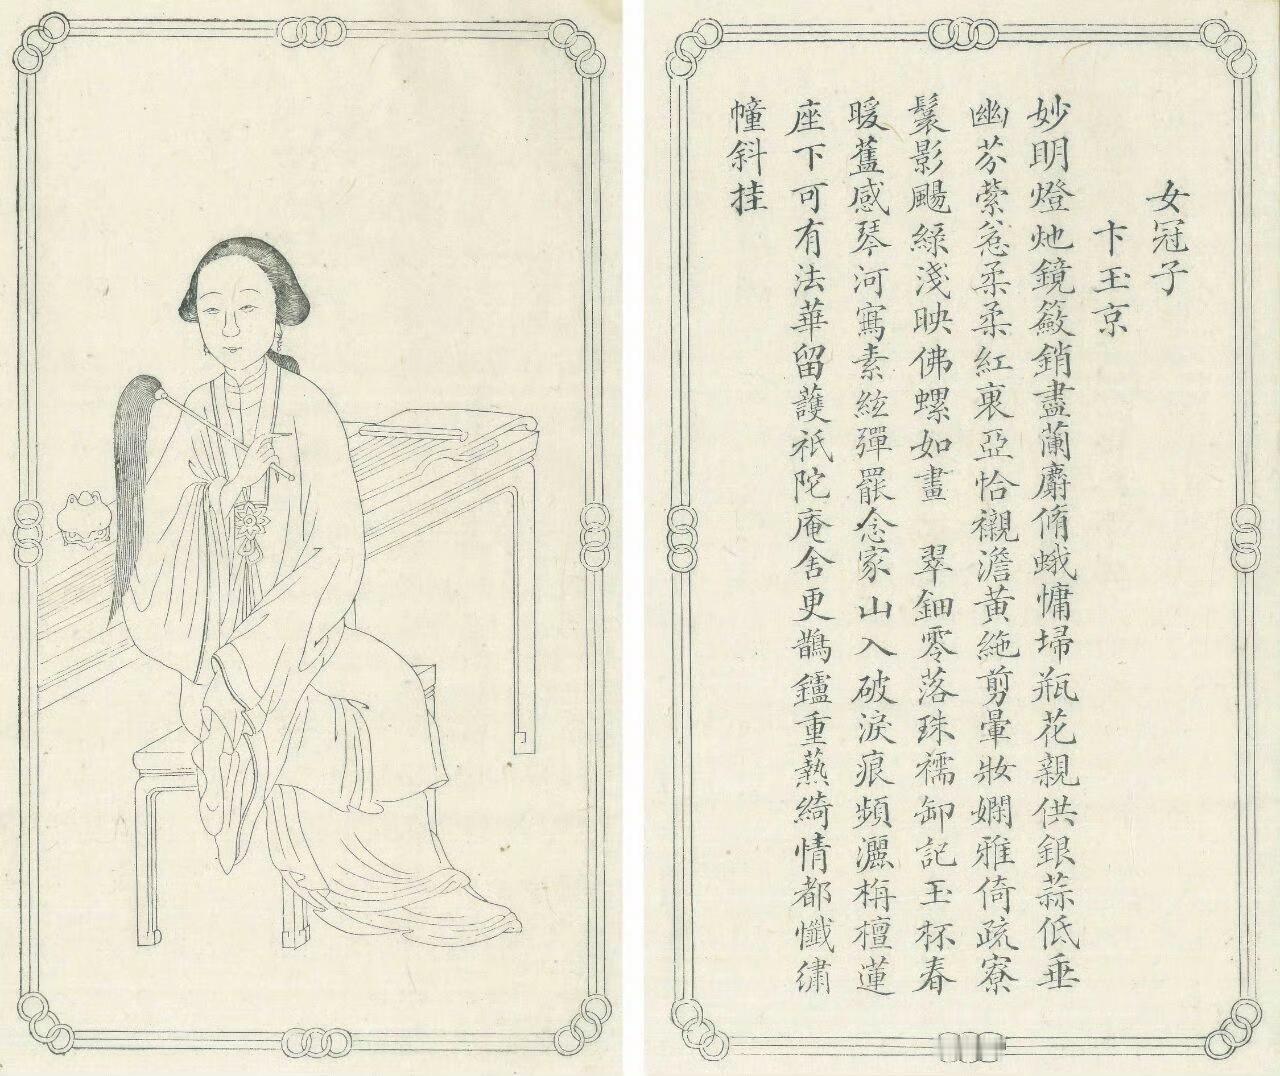 女冠子
卞玉京
妙明燈灺鏡籢銷盡蘭麝脩蛾慵埽瓶花親供銀蒜低垂
幽芬縈惹柔柔紅裏亞恰襯澹黃絁剪暈妝嫻雅倚疏寮
鬟影颺綠淺映佛螺如畫　翠鈿零落珠襦卸記玉杯春
暖舊感琴河寫素絃彈罷念家山入破淚痕頻灑栴檀蓮
座下可有法華留護祇陀庵舍更鵲鑪重爇綺情都懺繡
幢斜挂